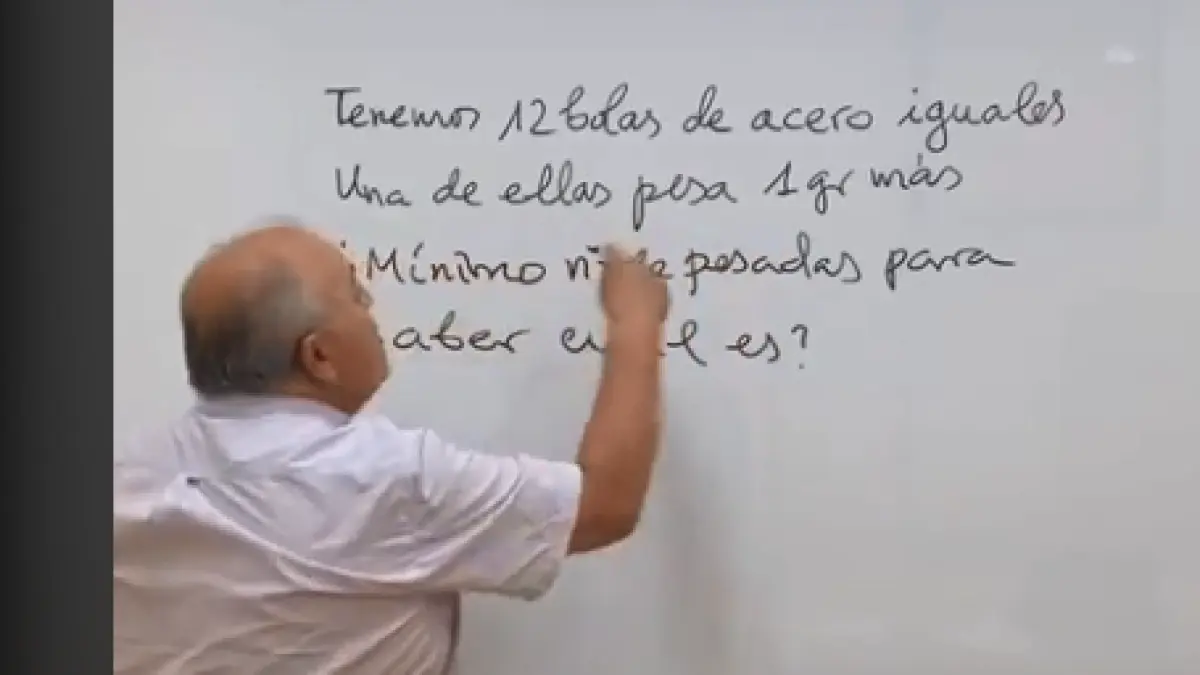 Tenemos 12 bolas de acero iguales
Una de ellas pesa 1 gr más
¿Mínimo pesadas para
es?